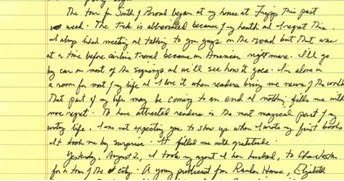 The tour for South of Broad began at my house at Fripp this past
week. The tour is abbreviated because of my health and I regret this.
I always liked meeting and talking to you guys on the road but that was
at a time before airline travel became an American nightmare. I'll go
by car on most of the signings and we'll see how it goes. I'm alone in
a room for most of my life and I love it when readers bring me news of the world.
That part of my life may be coming to an end and nothing fills me with
more regret. To have attracted readers is the most magical part of my
writing life. I was not expecting you to show up when I wrote my first books.
It took me by surprise. It filled me with gratitude.
Yesterday, August 2, I took my agent and her husband, to Charleston
for a tour of the city. A young producer from Random House, Elizabeth